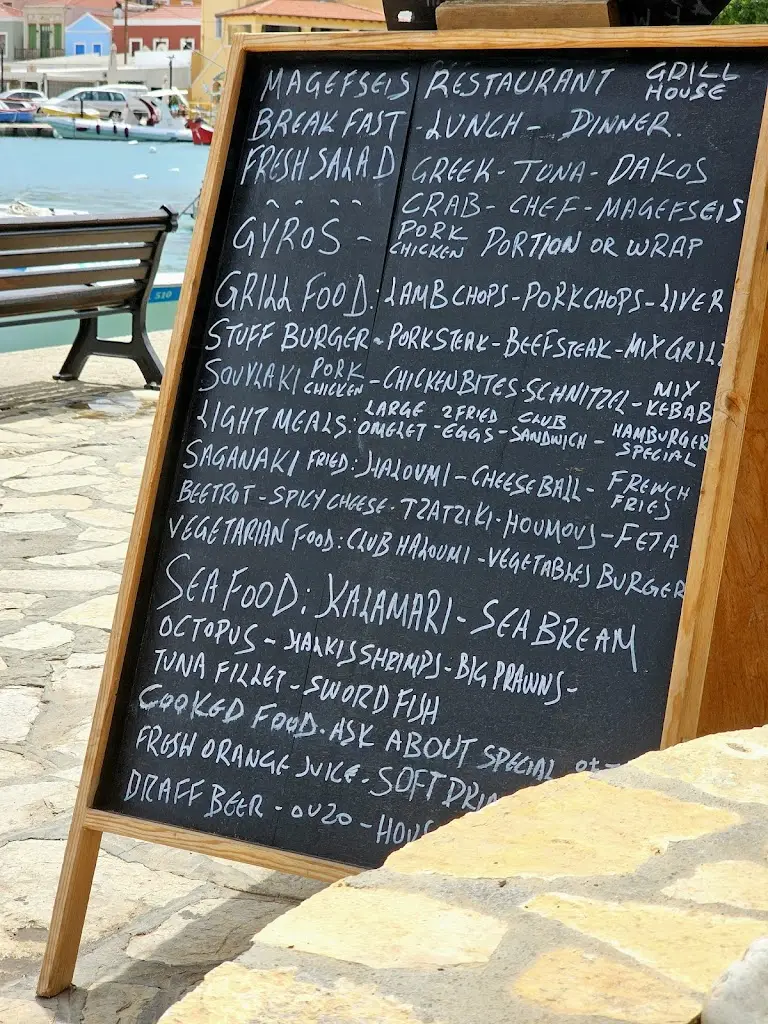 MAGEFSEIS RESTAURANT GRILL HOUSE
BREAKFAST - LUNCH - DINNER.
FRESH SALAD GREEK - TUNA - DAKOS
CRAB - CHEF - MAGEFSEIS
GYROS - PORK CHICKEN PORTION OR WRAP
GRILL FOOD: LAMB CHOPS - PORKCHOPS - LIVER
STUFF BURGER - PORKSTEAK - BEEFSTEAK - MIX GRILL
SOUVLAKI PORK CHICKEN - CHICKEN BITES - SCHNITZEL - MIX KEBAB
LIGHT MEALS: LARGE OMELET - 2 FRIED EGGS - CLUB SANDWICH - HAMBURGER SPECIAL
SAGANAKI FRIED: HALOUMI - CHEESE BALL - FRENCH FRIES
BEETROT - SPICY CHEESE - TZATZIKI - HOUMOUS - FETA
VEGETARIAN FOOD: CLUB HALOUMI - VEGETABLES BURGER
SEAFOOD: KALAMARI - SEA BREAM
OCTOPUS - HALKIS SHRIMPS - BIG PRAWNS -
TUNA FILLET - SWORD FISH
COOKED FOOD. ASK ABOUT SPECIAL
FRESH ORANGE JUICE - SOFT
DRAFF BEER - OUZO -
510